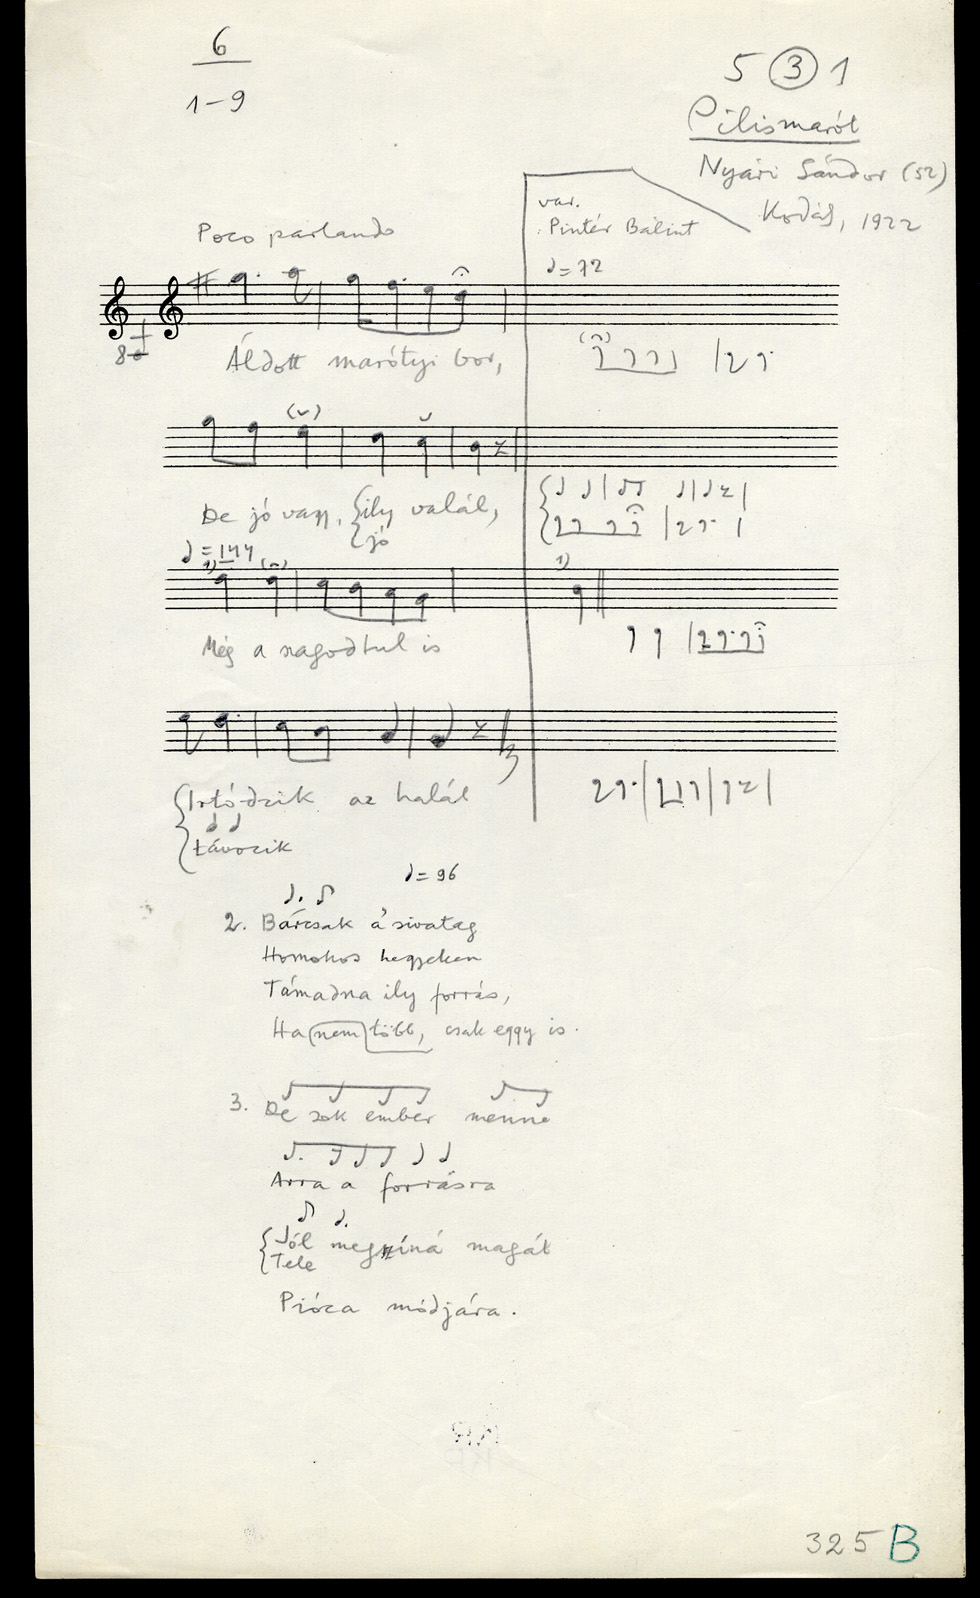 6
1-9
5 3 1
Pilismarót
Nyári Sándor (52)
Kodály, 1922
var.
Pintér Bálint
Poco parlando
♩=72
8
Áldott marótyi bor,
De jó vagy, { ily valál,
jó
♩=144
1)
1)
Még a nagodtul is
{ Irtódzik az halál
távozik
♩=96
2. Bárcsak a' sivatag
Homokos hegyeken
Támadna ily forrás,
Ha (nem) több, csak eggy is.
3. De sok ember menne
Arra a forrásra
{ Jól megszíná magát
Tele
Pióca módjára.
325 B